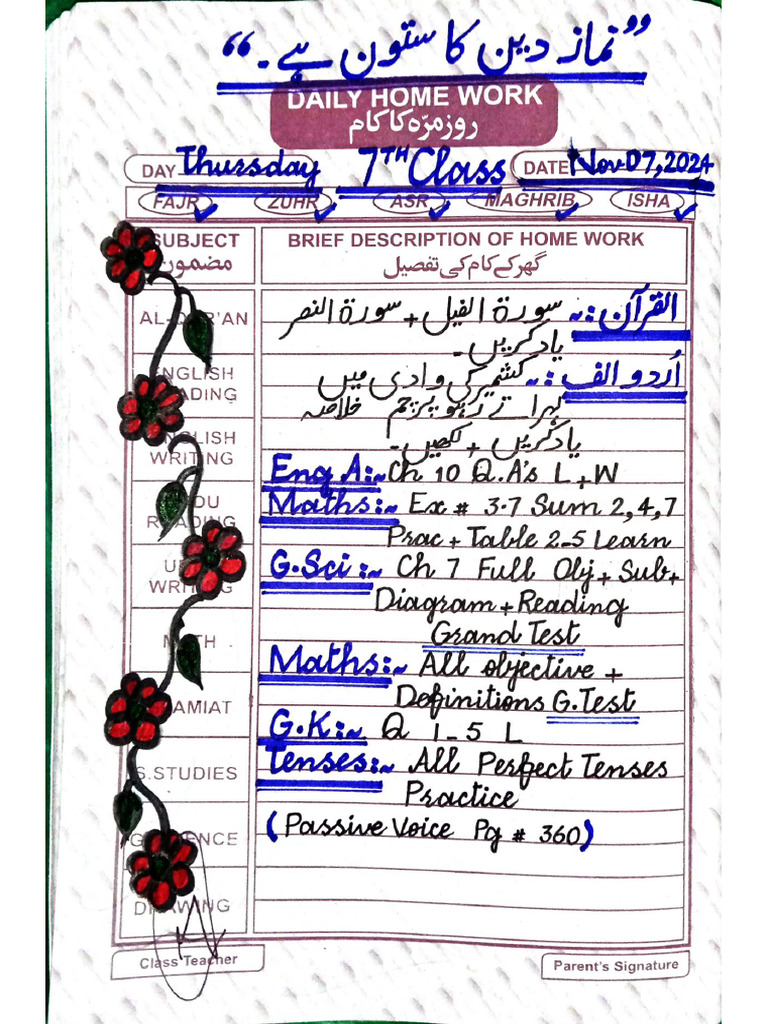 ”نماز دین کا ستون ہے۔“
DAILY HOME WORK
روزمرّہ کا کام
DAY Thursday 7TH Class DATE Nov 07, 2024
FAJR ZUHR ASR MAGHRIB ISHA
SUBJECT BRIEF DESCRIPTION OF HOME WORK
مضمون گھر کے کام کی تفصیل
AL-QUR'AN القرآن :~ سورۃ الفیل + سورۃ النصر
یاد کریں۔
ENGLISH READING اُردو الف :~ کشمیر کی وادی میں
لہراتے رہو پرچم خلاصہ
ENGLISH WRITING یاد کریں + لکھیں۔
Eng A:~ Ch 10 Q.A's L+W
URDU READING Maths:~ Ex # 3.7 Sum 2,4,7
Prac + Table 2-5 Learn
URDU WRITING G.Sci:~ Ch 7 Full Obj + Sub +
Diagram + Reading
MATH Grand Test
Maths:~ All objective +
ISLAMIAT Definitions G.Test
G.K:~ Q 1-5 L
S.STUDIES Tenses:~ All Perfect Tenses
Practice
G.SCIENCE (Passive Voice Pg # 360)
DRAWING
Class Teacher Parent's Signature